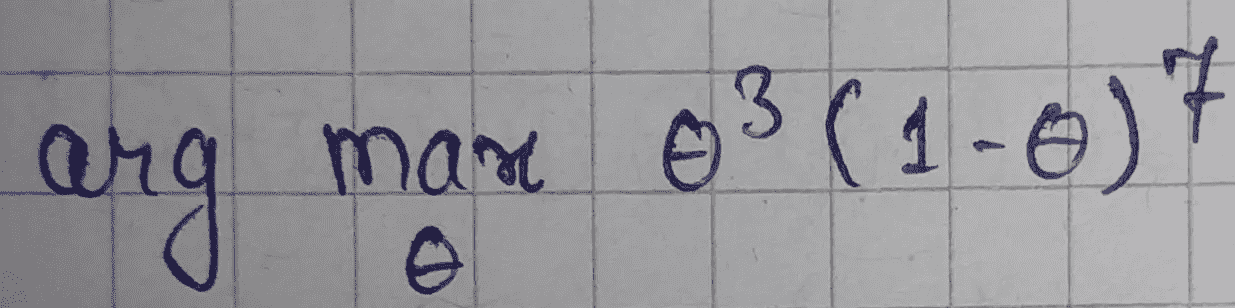 arg max θ³(1-θ)⁷
θ